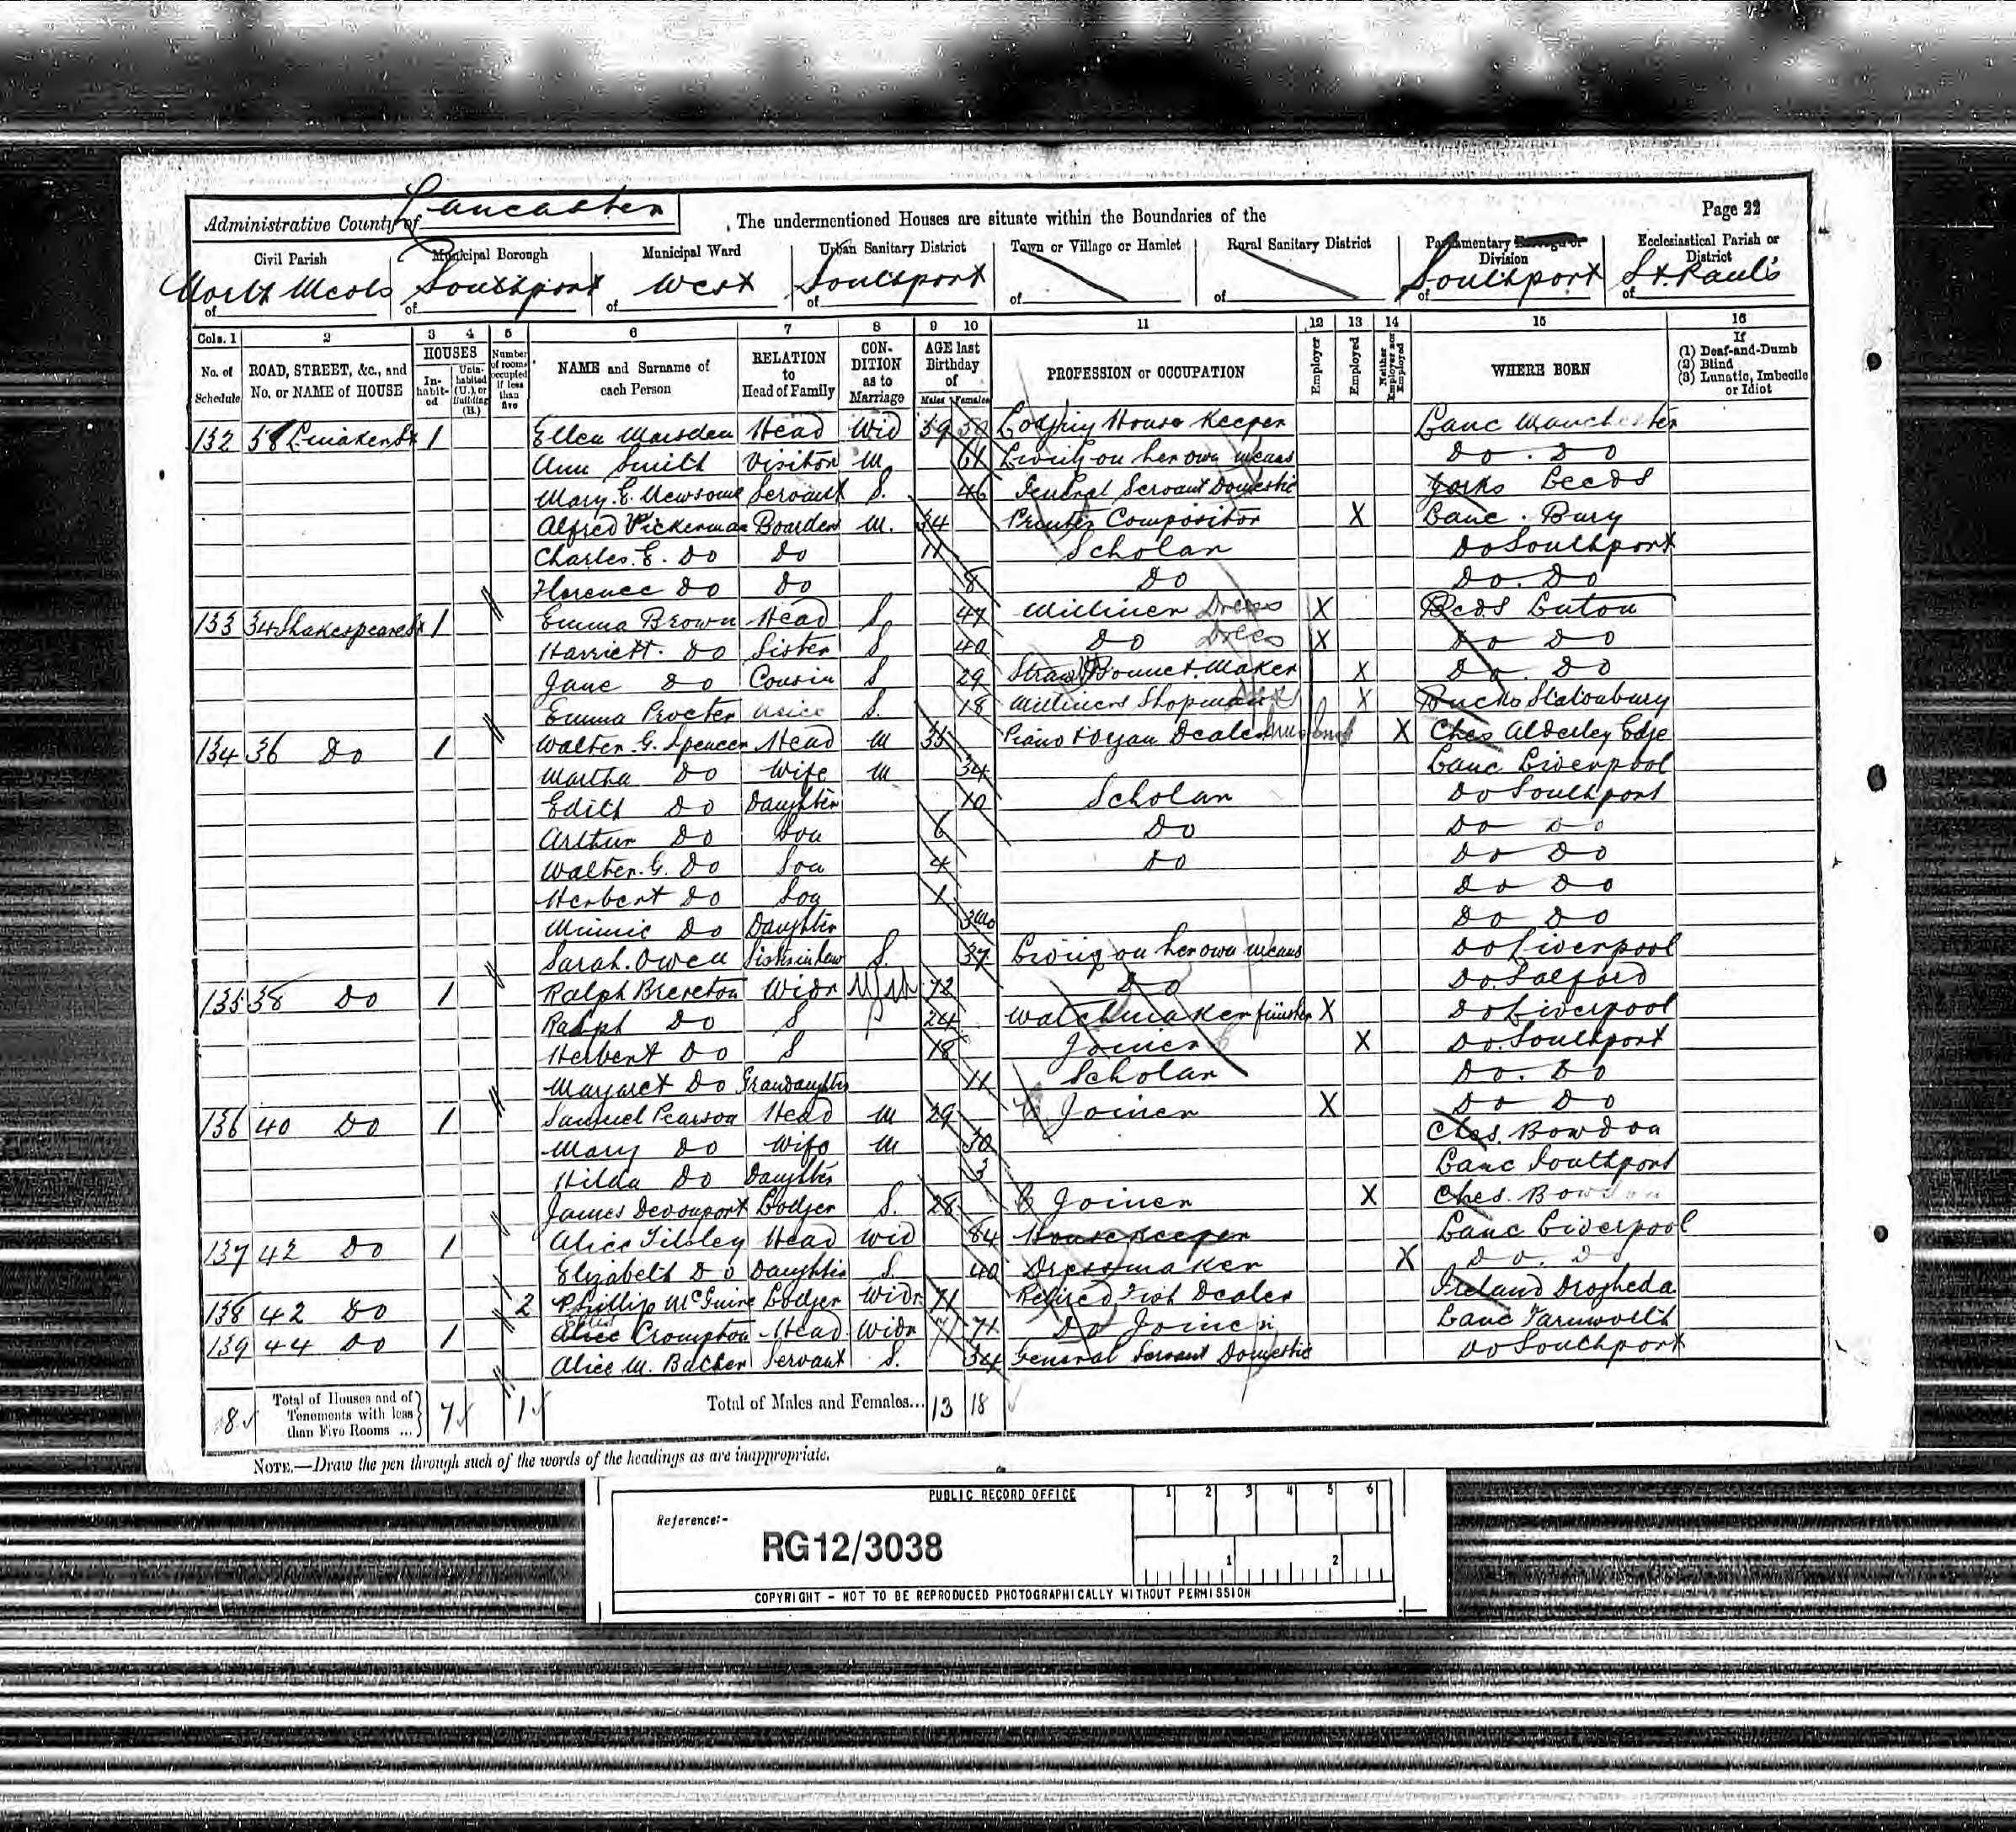 Administrative County of Lancaster
The undermentioned Houses are situate within the Boundaries of the
Page 22
Civil Parish of North Meols
Municipal Borough of Southport
Municipal Ward of West
Urban Sanitary District of Southport
Town or Village or Hamlet of
Rural Sanitary District of
Parliamentary Borough or Division of Southport
Ecclesiastical Parish or District of St. Paul's
Cols. 1 2 3 4 5 6 7 8 9 10 11 12 13 14 15 16
No. of Schedule
ROAD, STREET, &c., and No. or NAME of HOUSE
HOUSES
In-habit-ed
Unin-habited (U.), or Building (B.)
Number of rooms occupied if less than five
NAME and Surname of each Person
RELATION to Head of Family
CON-DITION as to Marriage
AGE last Birthday of
Males Females
PROFESSION or OCCUPATION
Employer
Employed
Neither Employer nor Employed
WHERE BORN
If (1) Deaf-and-Dumb (2) Blind (3) Lunatic, Imbecile or Idiot
132 58 Linaker St 1 Ellen Marsden Head Wid 39 Lodging House Keeper Lanc Manchester
Ann Smith Visitor M 61 Living on her own means Do. Do
Mary. E. Newsome Servant S. 46 General Servant Domestic Yorks Leeds
Alfred Pickerman Boarder M. 34 Printer Compositor X Lanc. Bury
Charles. E. Do Do 11 Scholar Do Southport
Florence Do Do 8 Do Do. Do
133 34 Shakespeare St 1 Emma Brown Head S 47 Milliner Dress X Beds Luton
Harriett. Do Sister S 40 Do Dress X Do Do
Jane Do Cousin S 29 Straw Bonnet. Maker X Do. Do
Emma Procter Niece S. 18 Milliners X Bucks
134 36 Do 1 Walter. G. Spencer Head M 35 Piano & Organ Dealer X Ches Alderley Edge
Martha Do Wife M 34 Lanc Liverpool
Edith Do Daughter 10 Scholar Do Southport
Arthur Do Son 6 Do Do Do
Walter. G. Do Son 4 Do Do Do
Herbert Do Son 1 Do Do
Minnie Do Daughter 3 Mo Do Do
Sarah. Owen Sister in law S. 37 Living on her own means Do Liverpool
135 38 Do 1 Ralph Brereton Widr 72 Do Do. Salford
Ralph Do S 24 Watchmaker finisher X Do Liverpool
Herbert Do S 18 Joiner X Do. Southport
Margaret Do Grandaughter 11 Scholar Do. Do
136 40 Do 1 Samuel Pearson Head M 29 Joiner X Do Do
Mary Do Wife M 30 Ches. Bowdon
Hilda Do Daughter 3 Lanc Southport
James Devonport Lodger S. 28 Joiner X Ches. Bowdon
137 42 Do 1 Alice Tilsley Head Wid 84 Housekeeper Lanc Liverpool
Elizabeth Do Daughter S. 40 Dressmaker X Do. Do
138 42 Do 2 Phillip McGuire Lodger Widr 71 Retired Fish Dealer Ireland Drogheda
139 44 Do 1 Alice Crompton Head Widr 71 71 Do Joiner Lanc Farnworth
Alice M. Butcher Servant S. 34 General Servant Domestic Do Southport
8 Total of Houses and of Tenements with less than Five Rooms ... 7 1 Total of Males and Females... 13 18
NOTE.—Draw the pen through such of the words of the headings as are inappropriate.
PUBLIC RECORD OFFICE
1 2 3 4 5 6
Reference:-
RG12/3038
1 2
COPYRIGHT - NOT TO BE REPRODUCED PHOTOGRAPHICALLY WITHOUT PERMISSION